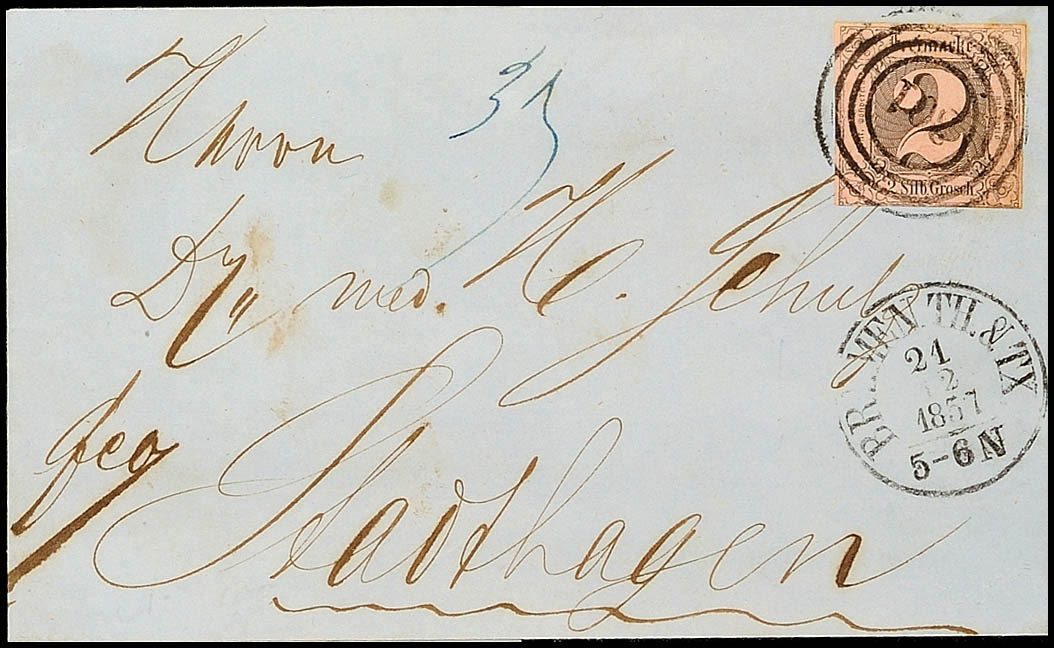 Herrn
Dr med. H. Schulz
fco
Stadthagen
37
Freimarke
2
2 Silb Grosch. 2
BREMEN TH. & TX
21
12
1857
5-6 N